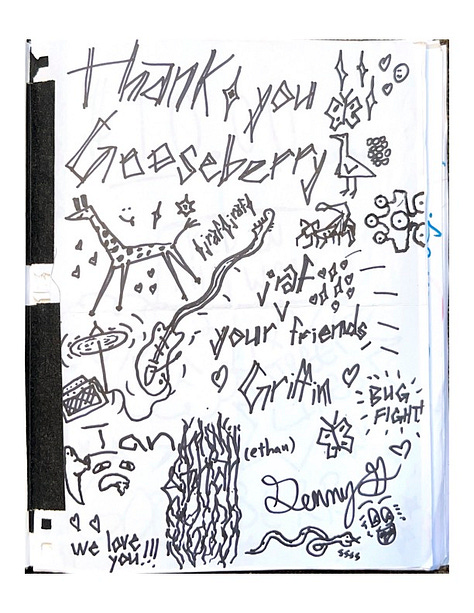 Thank you
Gooseberry
your friends
Griffin
BUG
FIGHT
Ian
(ethan)
Denny G
we love
you!!!
ssss